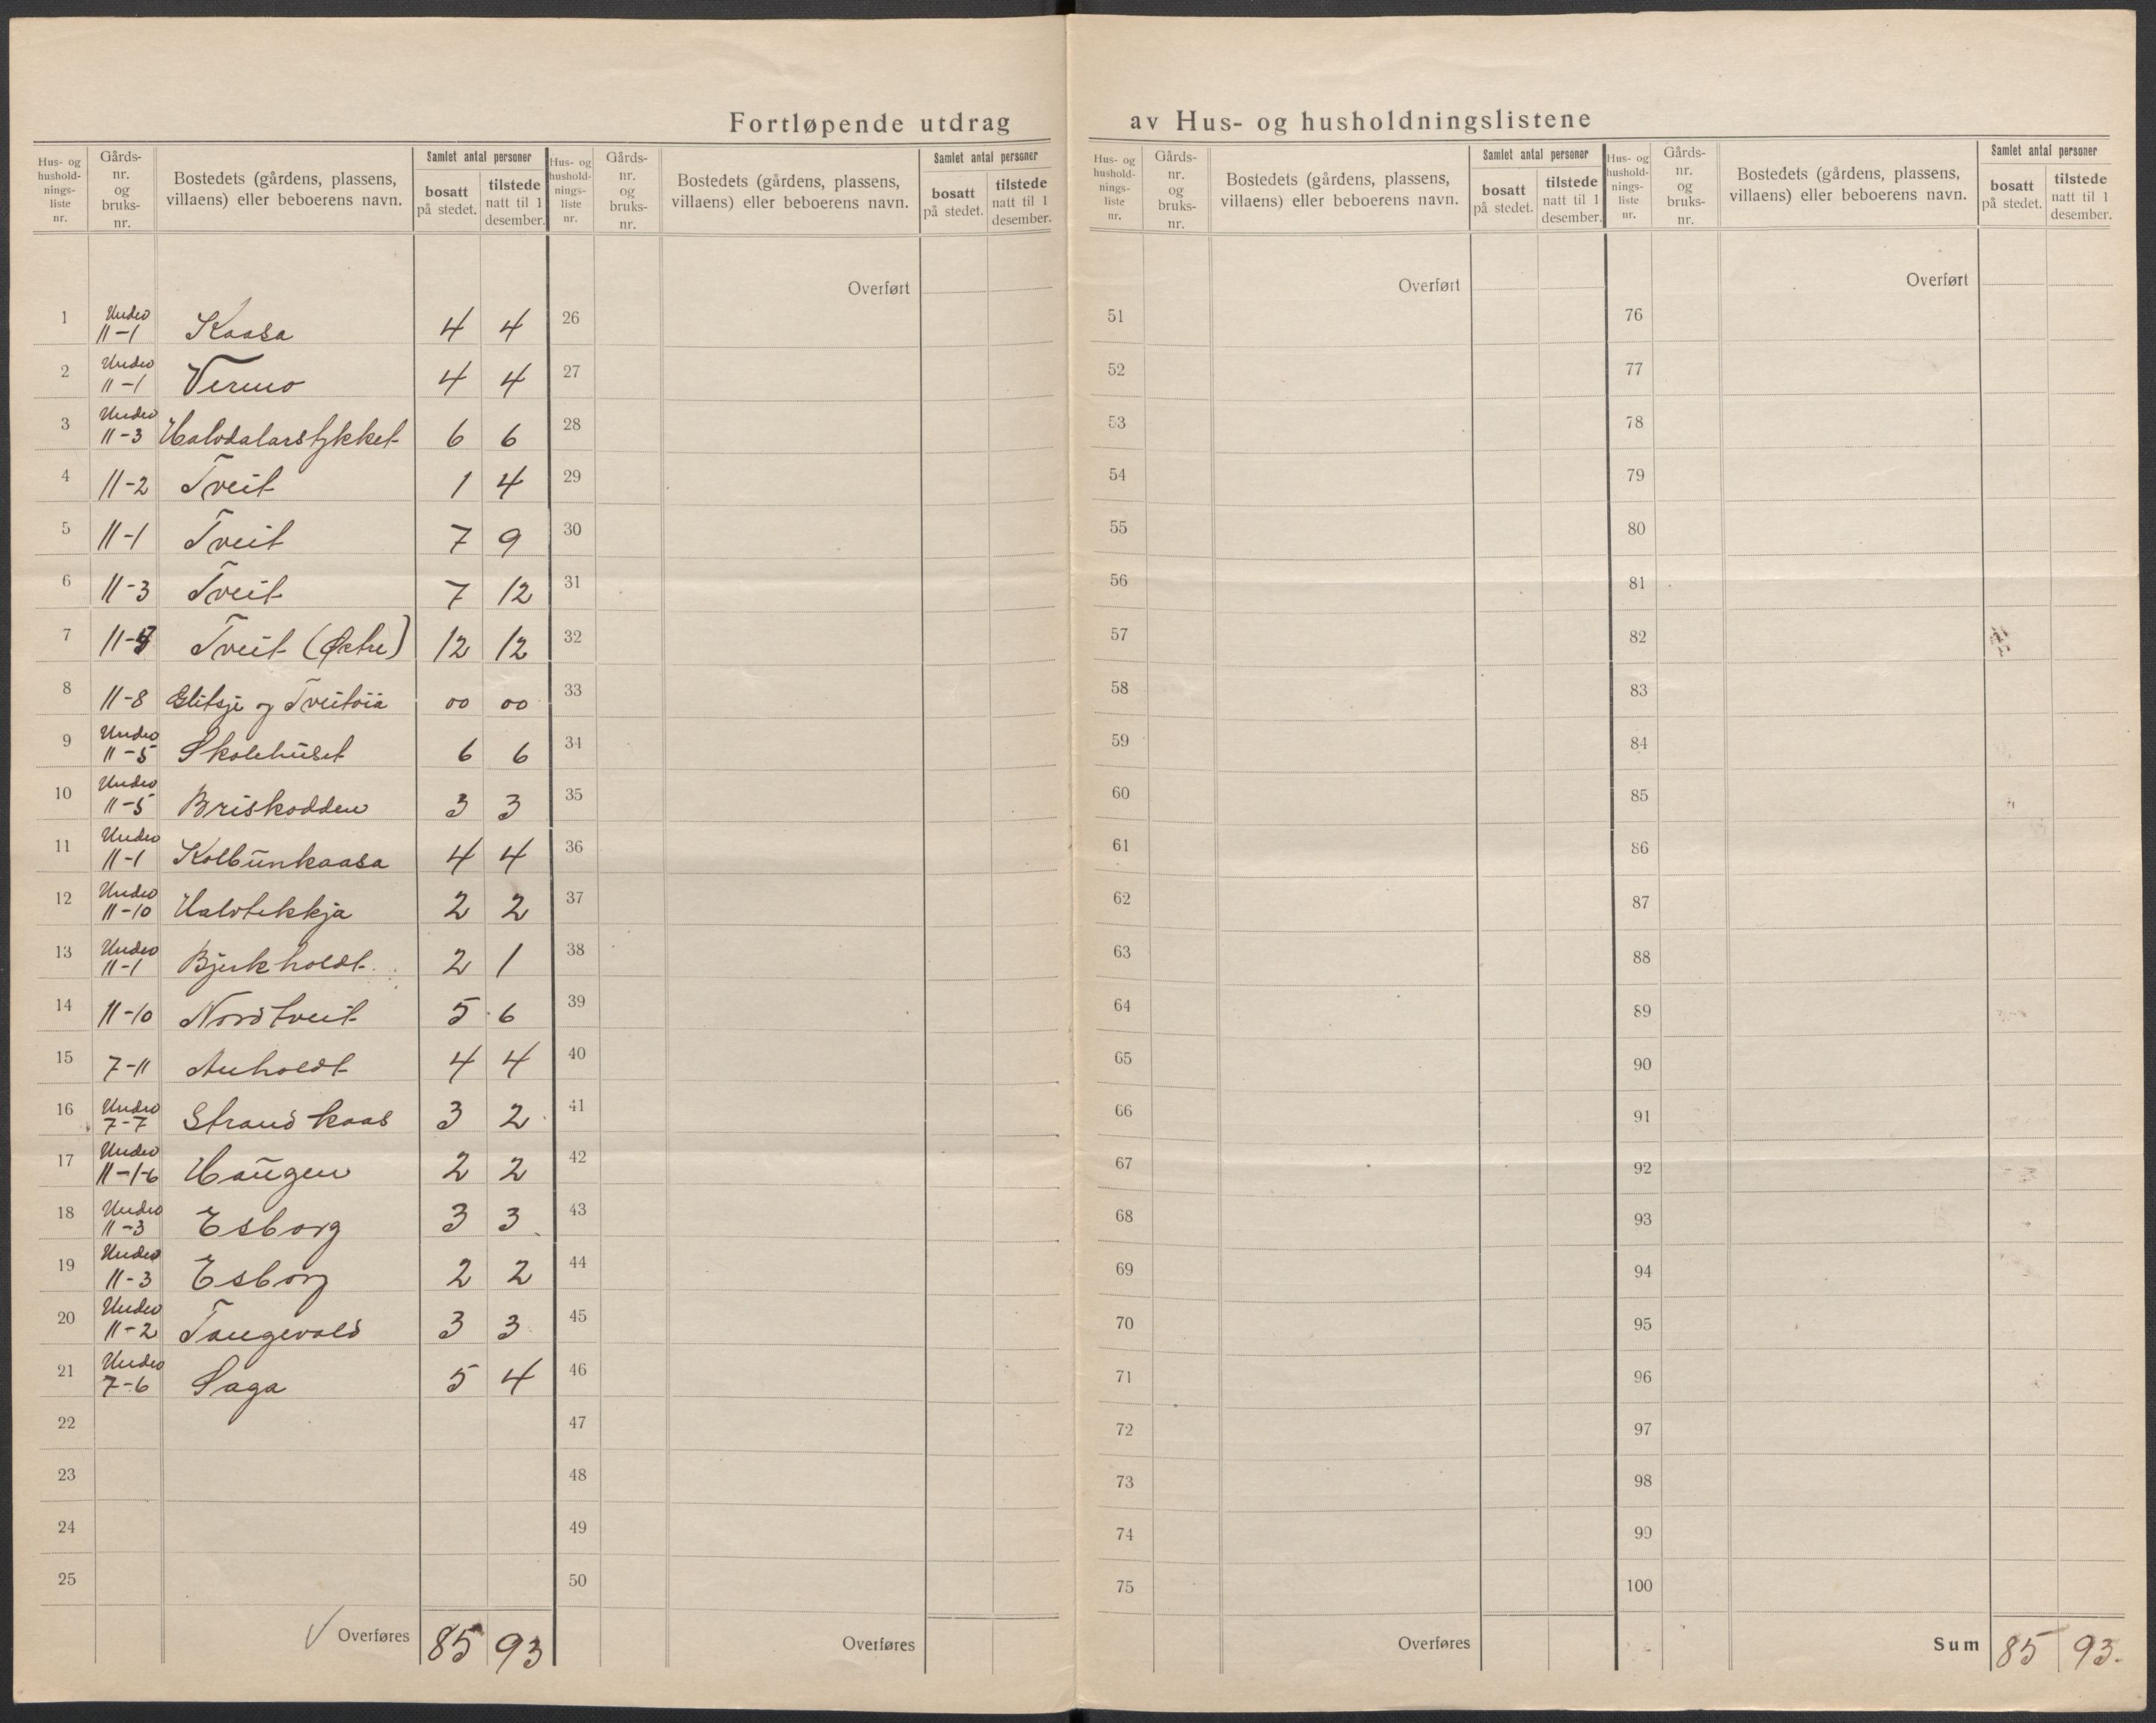 Fortløpende utdrag av Hus- og husholdningslistene
Hus- og hushold-nings-liste nr. Gårds-nr. og bruks-nr. Bostedets (gårdens, plassens, villaens) eller beboerens navn. Samlet antal personer bosatt på stedet. tilstede natt til 1 desember.
Hus- og hushold-nings-liste nr. Gårds-nr. og bruks-nr. Bostedets (gårdens, plassens, villaens) eller beboerens navn. Samlet antal personer bosatt på stedet. tilstede natt til 1 desember.
Hus- og hushold-nings-liste nr. Gårds-nr. og bruks-nr. Bostedets (gårdens, plassens, villaens) eller beboerens navn. Samlet antal personer bosatt på stedet. tilstede natt til 1 desember.
Hus- og hushold-nings-liste nr. Gårds-nr. og bruks-nr. Bostedets (gårdens, plassens, villaens) eller beboerens navn. Samlet antal personer bosatt på stedet. tilstede natt til 1 desember.
Overført Overført Overført
1 Under 11-1 Kaasa 4 4 26 51 76
2 Under 11-1 Vermo 4 4 27 52 77
3 Under 11-3 Halvdalarstykket 6 6 28 53 78
4 11-2 Tveit 1 4 29 54 79
5 11-1 Tveit 7 9 30 55 80
6 11-3 Tveit 7 12 31 56 81
7 Tveit (Østre) 12 12 32 57 82
8 11-8 og 00 00 33 58 83
9 Under 11-5 Skolehuset 6 6 34 59 84
10 Under 11-5 Briskodden 3 3 35 60 85
11 Under 11-1 Kolbunkaasa 4 4 36 61 86
12 Under 11-10 Halvtekkja 2 2 37 62 87
13 Under 11-1 Bjerkholdt 2 1 38 63 88
14 11-10 Nordtveit 5 6 39 64 89
15 7-11 Anholdt 4 4 40 65 90
16 Under 7-7 Strandkaas 3 2 41 66 91
17 Under 11-1-6 Haugen 2 2 42 67 92
18 Under 11-3 Esborg 3 3 43 68 93
19 Under 11-3 Esborg 2 2 44 69 94
20 Under 11-2 Tangevald 3 3 45 70 95
21 Under 7-6 Saga 5 4 46 71 96
22 47 72 97
23 48 73 98
24 49 74 99
25 50 75 100
Overføres 85 93 Overføres Overføres Sum 85 93.